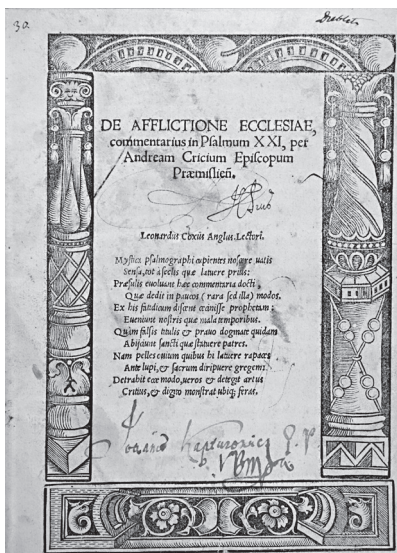 30
DE AFFLICTIONE ECCLESIAE,
commentarius in Psalmum XXI, per
Andream Cricium Episcopum
Præmislieñ.
Leonardus Coxus Anglus Lectori.
Mystica psalmographi cupientes noscere uatis
Sensa, tot a seclis quæ latuere prius:
Præsulis euoluant hæc commentaria docti,
Quæ dedit in paucos (rara sed illa) modos.
Ex his fatidicum discent cecinisse prophetam:
Eueniunt nostris quæ mala temporibus.
Quàm falsis titulis & prauo dogmate quidam
Abijciunt sancti quæ statuere patres.
Nam pelles ouium quibus hi latuere rapaces
Ante lupi, & sacrum diripuere gregem:
Detrahit ecce modo, ueros & detegit artus
Critius, & digito monstrat ubiq; feras.